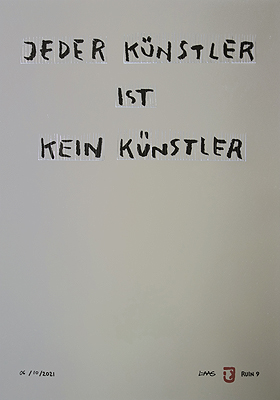 JEDER KÜNSTLER
IST
KEIN KÜNSTLER
06/10/2021
RUIN 9